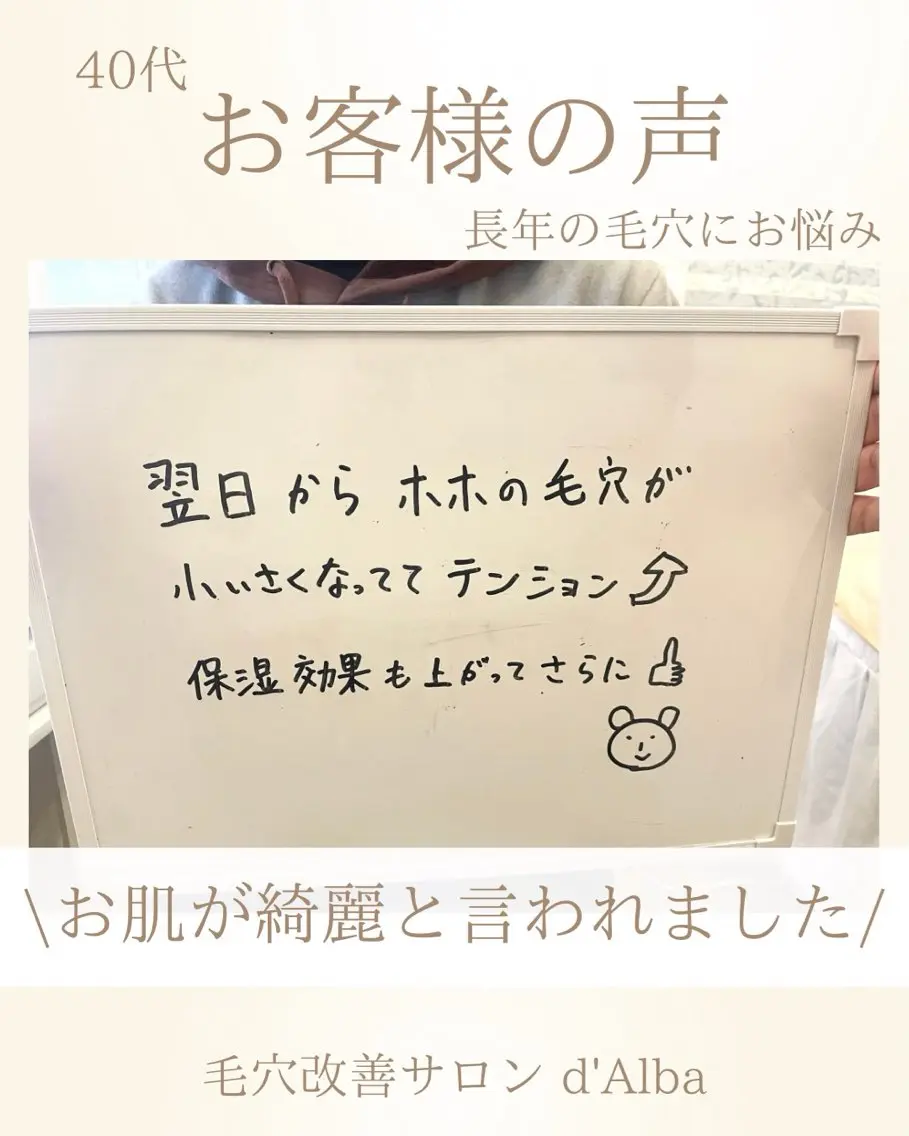 40代
お客様の声
長年の毛穴にお悩み
翌日から ホホの毛穴が
小いさくなってて テンション
保湿効果も上がって さらに
\お肌が綺麗と言われました/
毛穴改善サロン d'Alba